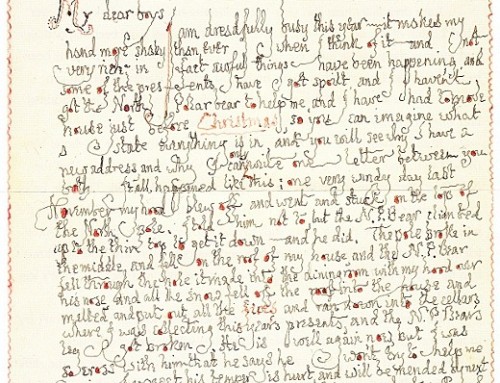 My dear boys
I am dreadfully busy this year — it makes my
hand more shaky than ever when I think of it — and not
very rich: in fact awful things have been happening, and
some of the presents have got spoilt and I haven't
got the North Polar bear to help me and I have had to move
house just before Christmas, so you can imagine what
a state everything is in, and you will see why I have a
new address, and why I can only write one letter between you
both. It all happened like this: one very windy day last
November my hood blew off and went and stuck on the top of
the North Pole. I told him not to but the N. P. Bear climbed
up to the thin top to get it down — and he did. The pole broke in
the middle and fell on the roof of my house and the N. P. Bear
fell through the hole it made into the dining room with my hood over
his nose and all the snow fell off the roof into the house and
melted and put out all the fires and ran down into the cellars
where I was collecting this year's presents, and the N. P. Bear's
leg got broken. He is well again now, but I was
so cross with him that he says he won't try to help me
again. I expect his temper is hurt, and will be mended by next